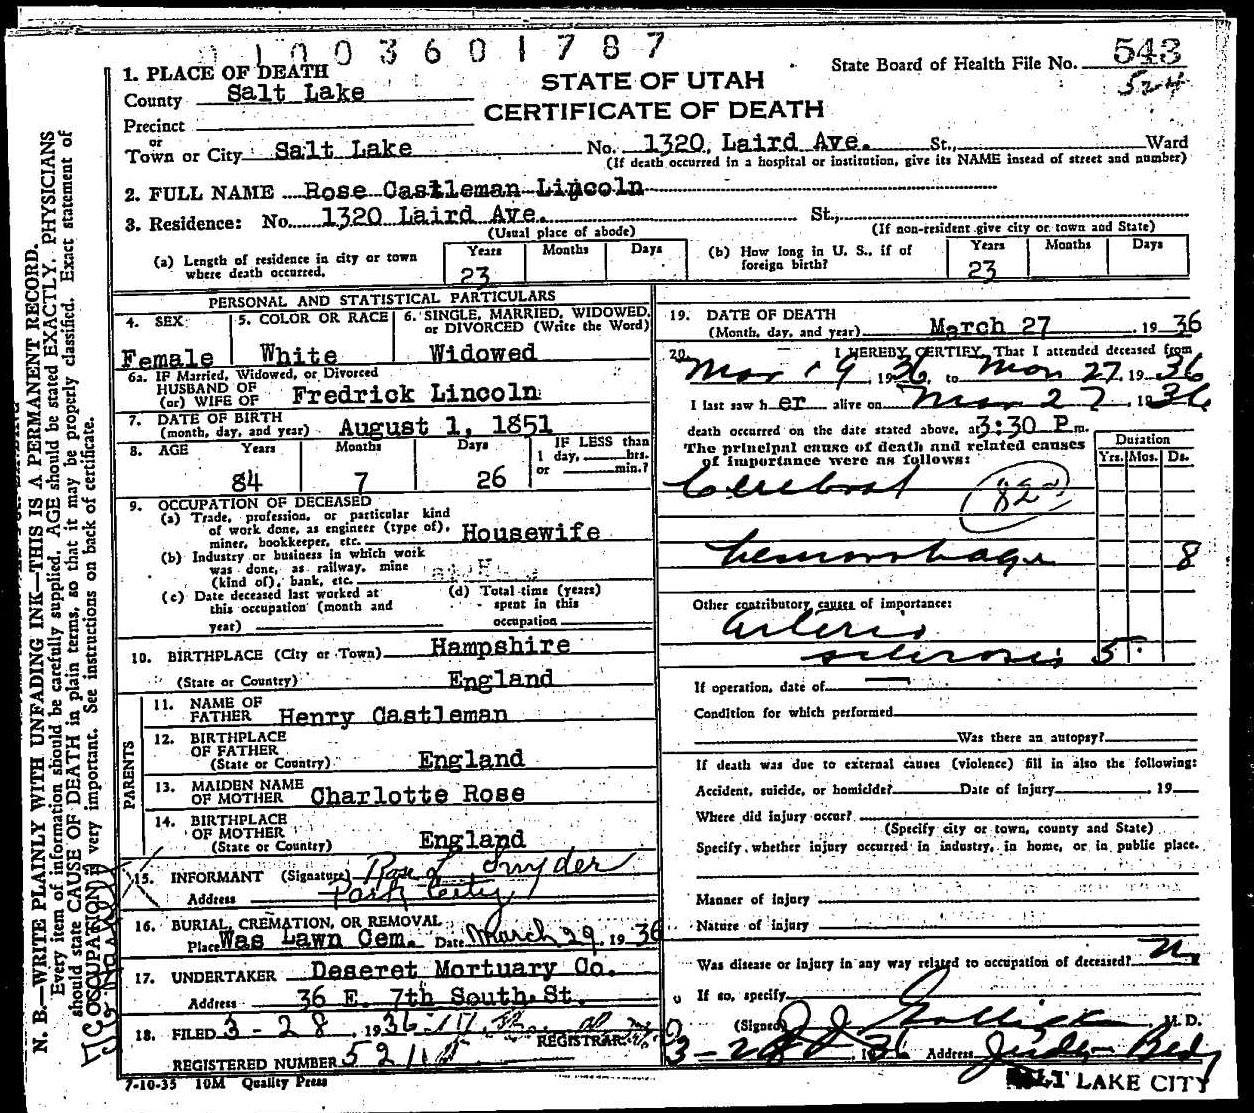 01003601787
543
State Board of Health File No.
524
STATE OF UTAH
CERTIFICATE OF DEATH
1. PLACE OF DEATH
County Salt Lake
Precinct
or
Town or City Salt Lake No. 1320 Laird Ave. St., Ward
(If death occurred in a hospital or institution, give its NAME insead of street and number)
2. FULL NAME Rose Castleman Lincoln
3. Residence: No. 1320 Laird Ave. St.,
(Usual place of abode) (If non-resident give city or town and State)
(a) Length of residence in city or town where death occurred. Years 23 Months Days
(b) How long in U. S., if of foreign birth? Years 23 Months Days
PERSONAL AND STATISTICAL PARTICULARS
4. SEX Female
5. COLOR OR RACE White
6. SINGLE, MARRIED, WIDOWED, or DIVORCED (Write the Word) Widowed
6a. IF Married, Widowed, or Divorced
HUSBAND OF
(or) WIFE OF Fredrick Lincoln
7. DATE OF BIRTH
(month, day, and year) August 1, 1851
8. AGE Years 84 Months 7 Days 26 IF LESS than 1 day, hrs. or min.?
9. OCCUPATION OF DECEASED
(a) Trade, profession, or particular kind
of work done, as engineer (type of),
miner, bookkeeper, etc. Housewife
(b) Industry or business in which work
was done, as railway, mine
(kind of), bank, etc.
(c) Date deceased last worked at
this occupation (month and
year)
(d) Total time (years)
spent in this
occupation
10. BIRTHPLACE (City or Town) Hampshire
(State or Country) England
PARENTS
11. NAME OF
FATHER Henry Castleman
12. BIRTHPLACE
OF FATHER
(State or Country) England
13. MAIDEN NAME
OF MOTHER Charlotte Rose
14. BIRTHPLACE
OF MOTHER
(State or Country) England
15. INFORMANT (Signature) Rose L Snyder
Address Park City
16. BURIAL, CREMATION, OR REMOVAL
Place Was Lawn Cem. Date March 29, 1936
17. UNDERTAKER Deseret Mortuary Co.
Address 36 E. 7th South St.
18. FILED 3-28, 1936
REGISTRAR
REGISTERED NUMBER 52
7-10-35 10M Quality Press
19. DATE OF DEATH
(Month, day, and year) March 27, 1936
20. I HEREBY CERTIFY, That I attended deceased from
Mar 19 1936, to Mar 27, 1936
I last saw her alive on Mar 27 1936
death occurred on the date stated above, at 3:30 P.m.
The principal cause of death and related causes
of importance were as follows:
Duration
Yrs. Mos. Ds.
Cerebral
82a
hemorrhage 8
Other contributory causes of importance:
Arterio
sclerosis 5
If operation, date of
Condition for which performed
Was there an autopsy?
If death was due to external causes (violence) fill in also the following:
Accident, suicide, or homicide? Date of injury , 19
Where did injury occur?
(Specify city or town, county and State)
Specify whether injury occurred in industry, in home, or in public place.
Manner of injury
Nature of injury
Was disease or injury in any way related to occupation of deceased? N
If so, specify
(Signed) M. D.
3-28, 1936 Address Judge Bldg
SALT LAKE CITY
N. B.—WRITE PLAINLY WITH UNFADING INK—THIS IS A PERMANENT RECORD.
Every item of information should be carefully supplied. AGE should be stated EXACTLY. PHYSICIANS
should state CAUSE OF DEATH in plain terms, so that it may be properly classified. Exact statement of
OCCUPATION is very important. See instructions on back of certificate.